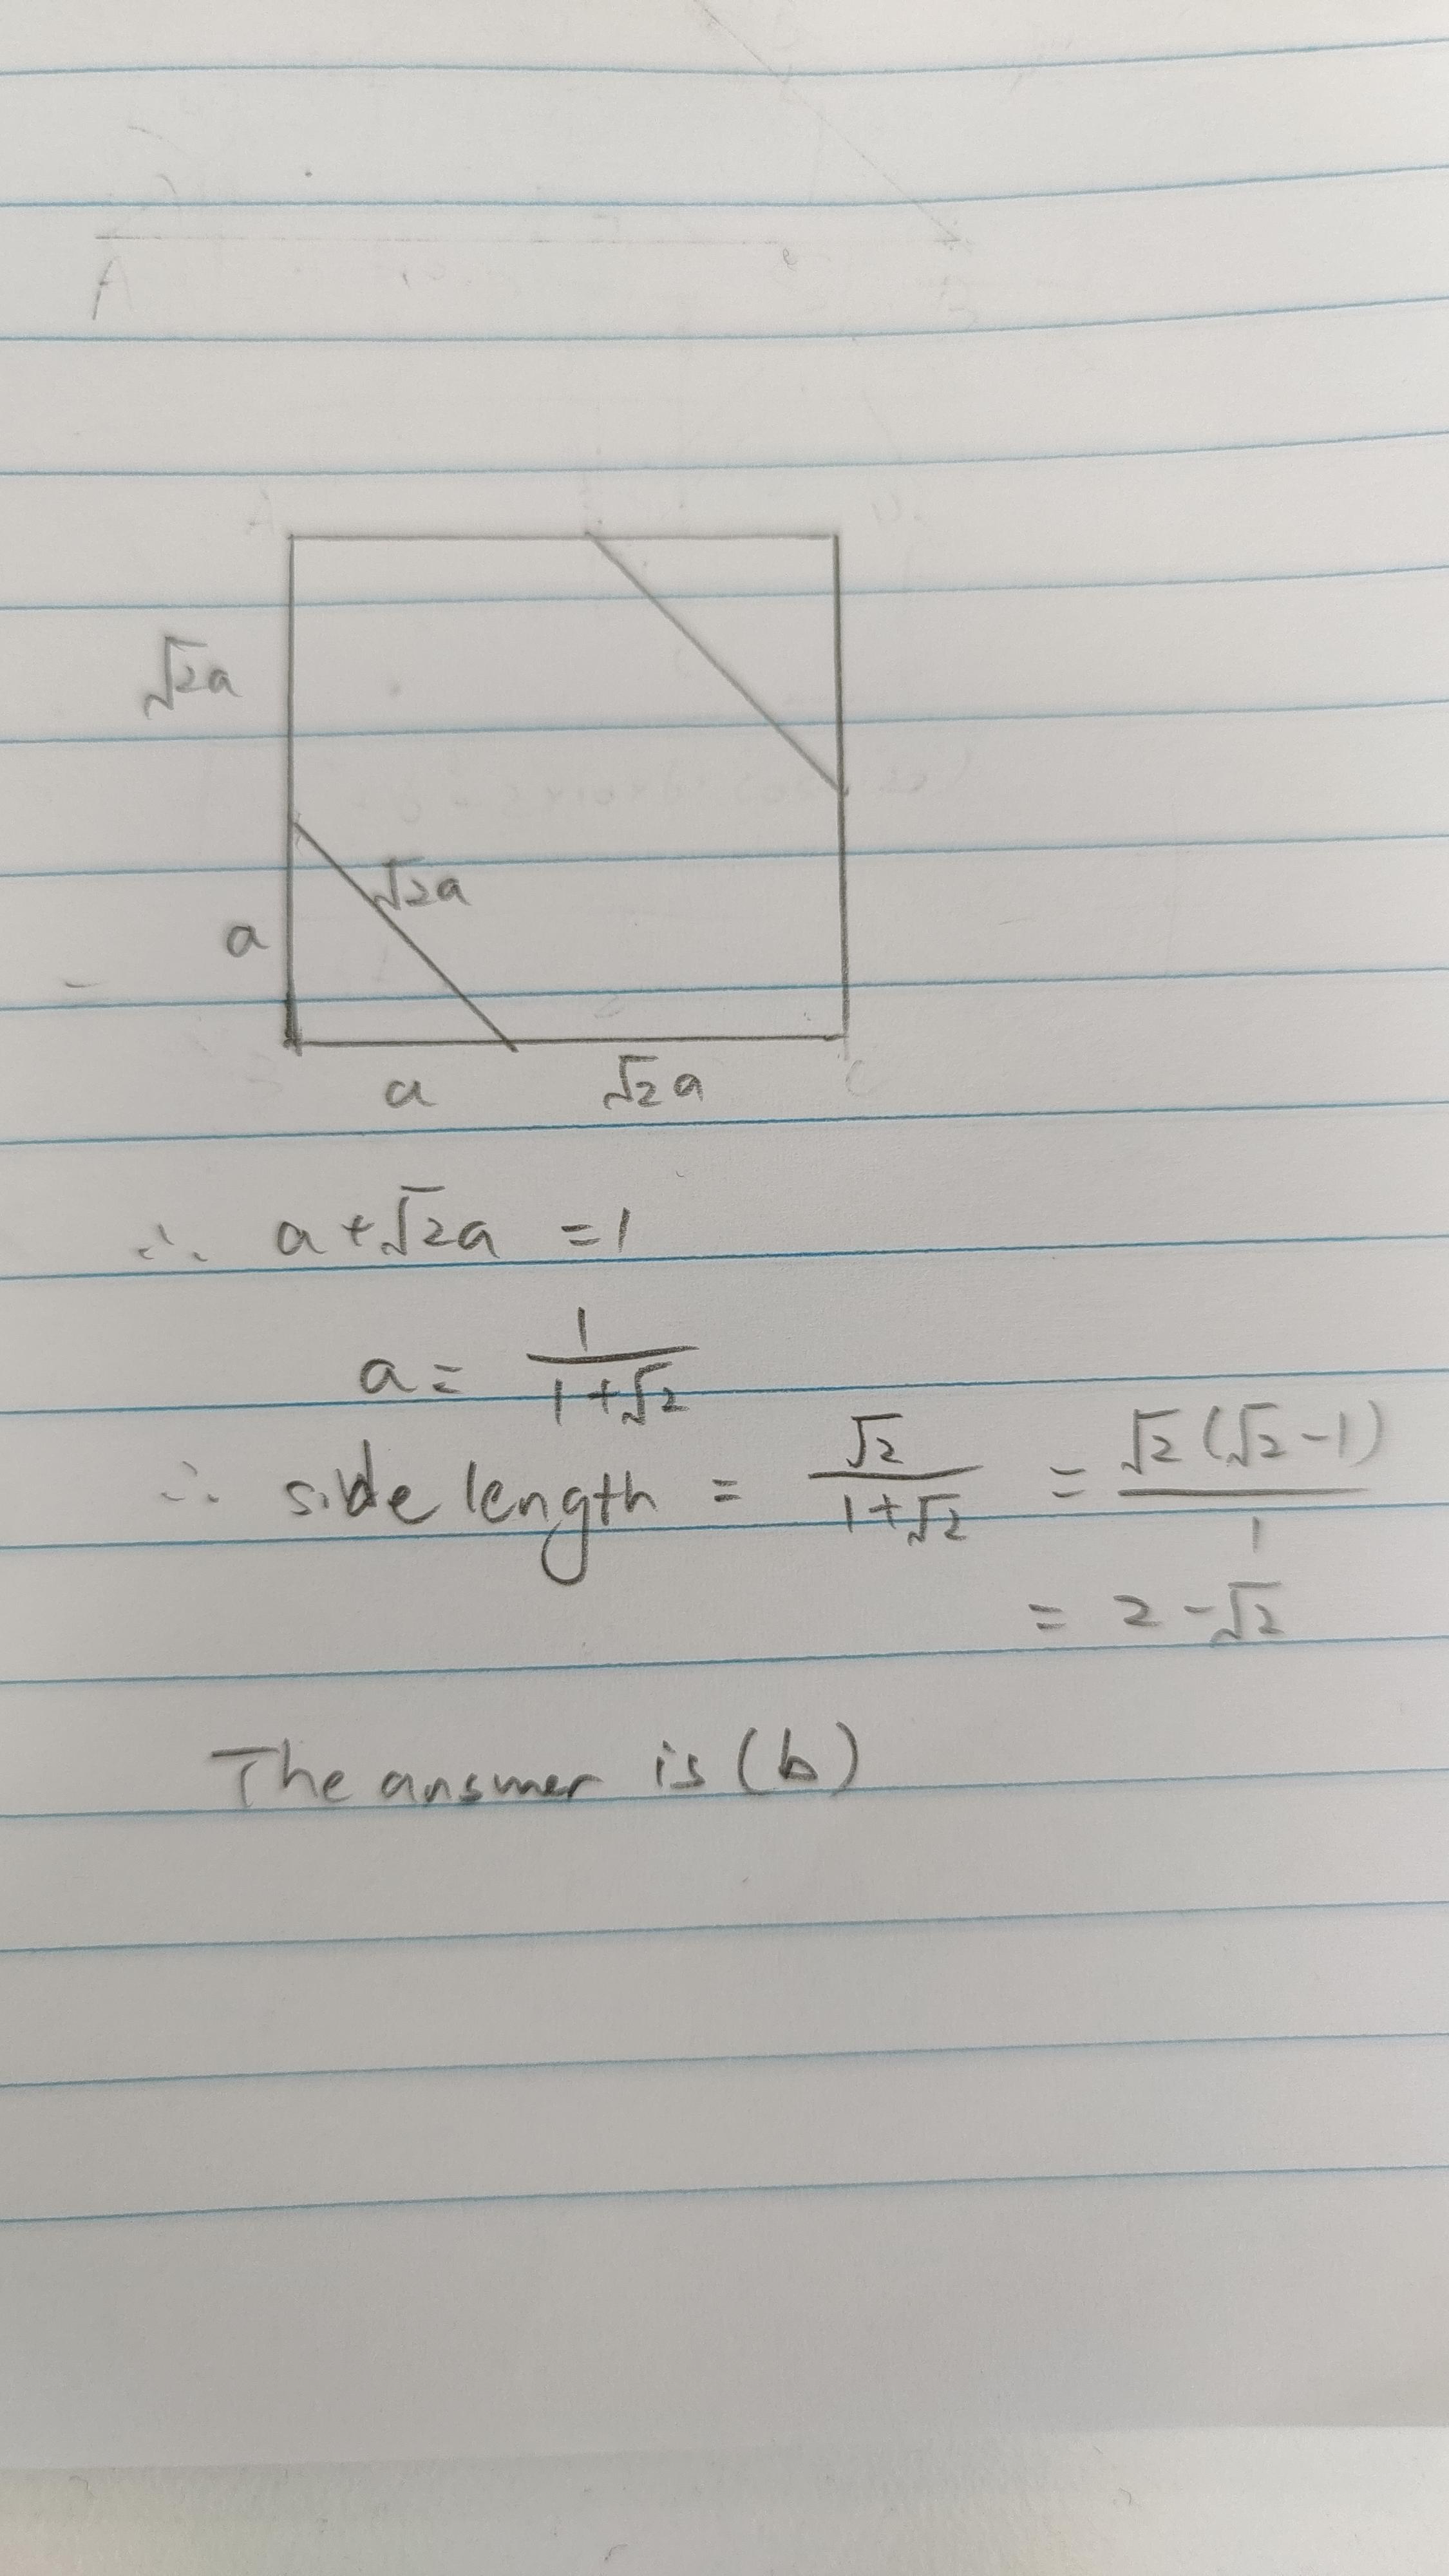 √2a
√2a
a
a √2a
∴ a+√2a =1
a = 1/(1+√2)
∴ side length = √2/(1+√2) = √2(√2-1)/1
= 2-√2
The answer is (b)